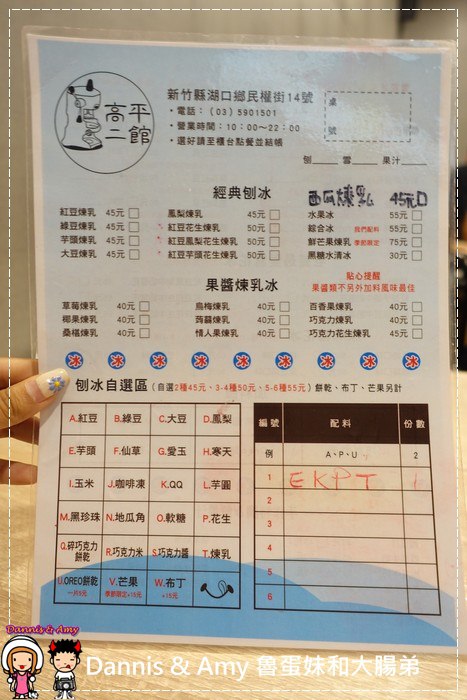 高平
二館
新竹縣湖口鄉民權街14號
・電話：（03）5901501
・營業時間：10：00～22：00
・選好請至櫃台點餐並結帳
桌
號
刨____ 雪____ 果汁____
經典刨冰
西瓜煉乳 45元口
紅豆煉乳 45元
綠豆煉乳 45元
芋頭煉乳 45元
大豆煉乳 45元
鳳梨煉乳 45元
紅豆花生煉乳 50元
紅豆鳳梨花生煉乳 50元
紅豆芋頭花生煉乳 50元
水果冰 55元
綜合冰 我們配料 55元
鮮芒果煉乳 季節限定 75元
黑糖水清冰 30元
果醬煉乳冰
貼心提醒
果醬類不另外加料風味最佳
草莓煉乳 40元
椰果煉乳 40元
桑椹煉乳 40元
烏梅煉乳 40元
蒟蒻煉乳 40元
情人果煉乳 40元
百香果煉乳 40元
巧克力煉乳 40元
巧克力花生煉乳 45元
冰 冰 冰 冰 冰 冰 冰 冰 冰
刨冰自選區（自選2種45元、3-4種50元、5-6種55元）餅乾、布丁、芒果另計
A.紅豆 B.綠豆 C.大豆 D.鳳梨
E.芋頭 F.仙草 G.愛玉 H.寒天
I.玉米 J.咖啡凍 K.QQ L.芋圓
M.黑珍珠 N.地瓜角 O.軟糖 P.花生
Q.碎巧克力餅乾 R.巧克力米 S.巧克力醬 T.煉乳
U.OREO餅乾 V.芒果 W.布丁
一片5元 季節限定+15元 +15元
編號 配料 份數
例 A、P、U 2
1 EKPT 1
2
3
4
5
6
Dannis & Amy
Dannis & Amy 魯蛋妹和大腸弟